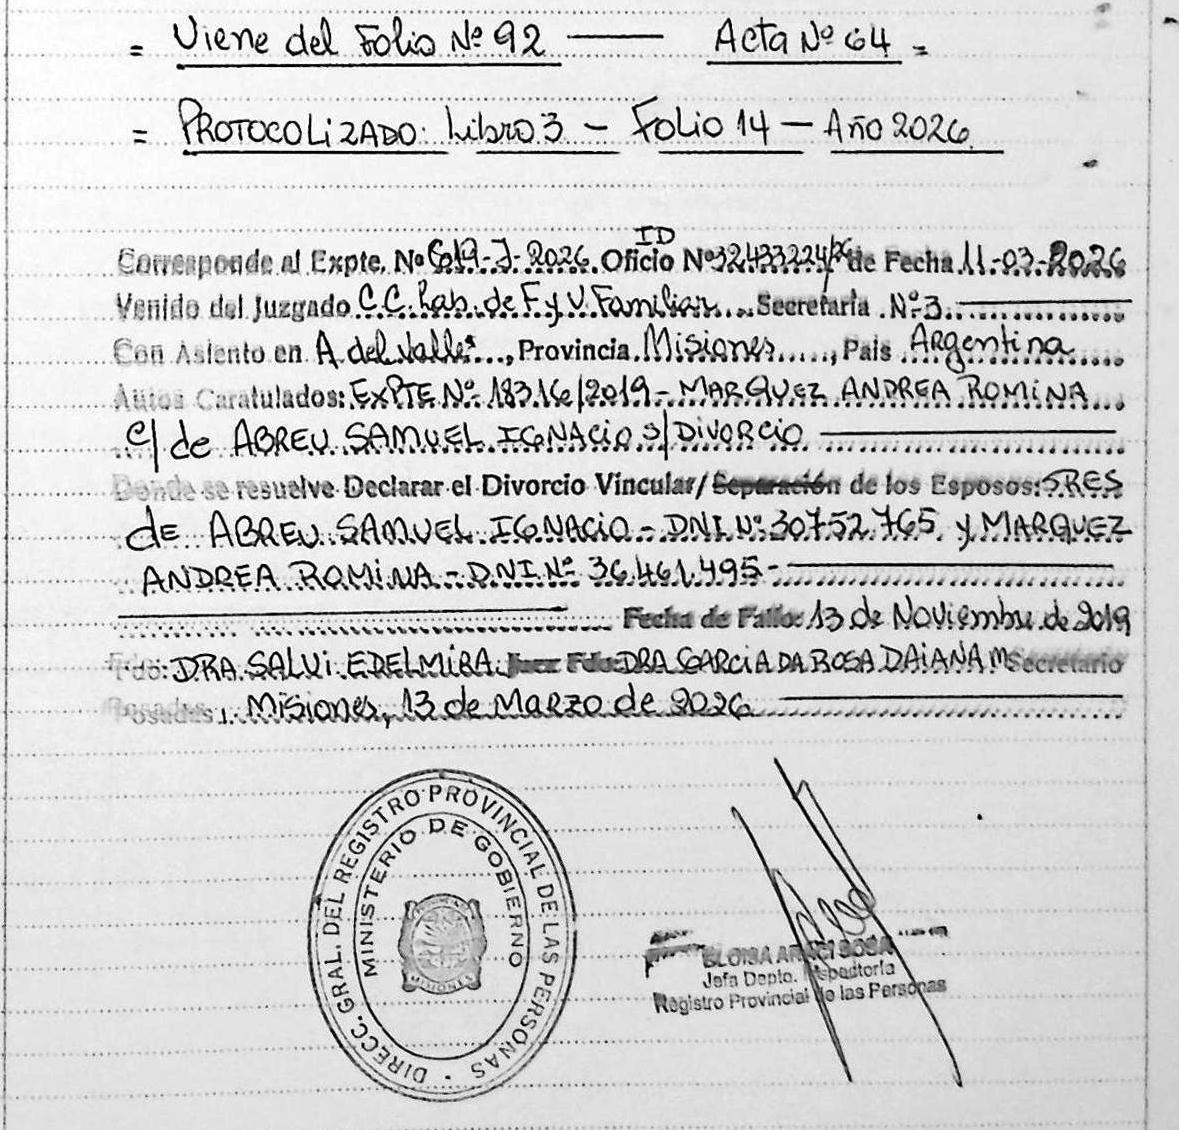 = Viene del Folio Nº 92 — Acta Nº 64 =
= PROTOCOLIZADO: Libro 3 - Folio 14 - Año 2026
ID
Corresponde al Expte. Nº 619-J-2026. Oficio Nº 32433224/26 de Fecha 11-03-2026
Venido del Juzgado C.C. Lab. de F. y V. Familiar... Secretaría Nº 3
Con Asiento en A del Valle, Provincia Misiones, Pais Argentina
Autos Caratulados: EXPTE Nº 18316/2019 - MARQUEZ ANDREA ROMINA
C/ de ABREU SAMUEL IGNACIO S/ DIVORCIO
Donde se resuelve Declarar el Divorcio Vincular/Separación de los Esposos: SRES
de ABREU SAMUEL IGNACIO - DNI Nº 30.752.765 y MARQUEZ
ANDREA ROMINA - DNI Nº 36.461.495 -
Fecha de Fallo: 13 de Noviembre de 2019
Fdo: DRA. SALVI EDELMIRA. Juez Fdo: DRA GARCIA DA ROSA DAIANA M Secretario
Posadas, Misiones, 13 de Marzo de 2026
DIRECC. GRAL. DEL REGISTRO PROVINCIAL DE LAS PERSONAS
MINISTERIO DE GOBIERNO
MISIONES
ELOISA ARACI SOSA
Jefa Depto. Inspectoría
Registro Provincial de las Personas